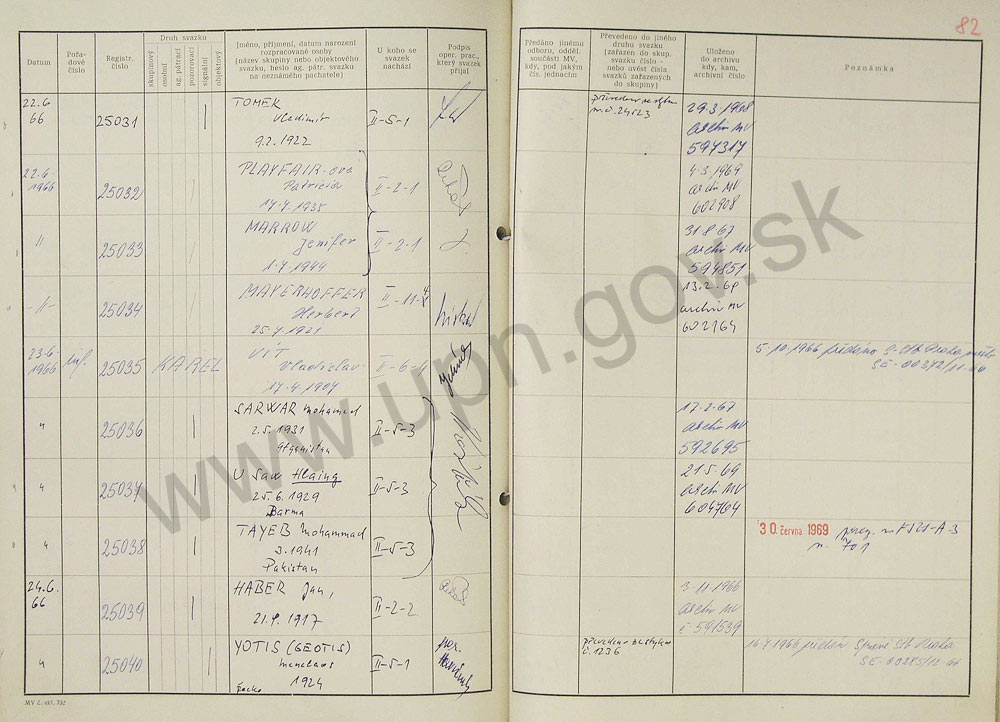 82
Datum
Pořa-
dové
číslo
Registr.
číslo
Druh svazku
skupinový
osobní
ag. pátrací
pozorovací
signální
objektový
Jméno, příjmení, datum narození
rozpracované osoby
(název skupiny nebo objektového
svazku, heslo ag. pátr. svazku
na neznámého pachatele)
U koho se
svazek
nachází
Podpis
oper. prac.,
který svazek
přijal
Předáno jinému
odboru, odděl.
součásti MV,
kdy, pod jakým
čís. jednacím
Převedeno do jiného
druhu svazku
(zařazen do skup.
svazku číslo -
nebo uvést čísla
svazků zařazených
do skupiny)
Uloženo
do archivu
kdy, kam,
archivní číslo
Poznámka
22.6
66
25031
TOMEK
Vladimír
9.2.1922
II-5-1
29.3.1968
archiv MV
597317
22.6.
1966
25032
PLAYFAIR-ová
Patricia
17.4.1935
II-2-1
4.3.1969
archiv MV
602908
"
25033
MARROW
Jenifer
1.4.1944
II-2-1
31.8.67
archiv MV
594851
"
25034
MAYERHOFFER
Herbert
25.4.1921
II-11-4
13.2.69
archiv MV
602764
23.6.
1966
inf.
25035
KAREL
VÍT
Vladislav
17.4.1904
II-6-4
5.10.1966 předáno S-StB Praha
"
25036
SARWAR Mohamed
2.5.1931
Afganistan
II-5-3
17.2.67
archiv MV
592695
"
25037
U Saw Hlaing
25.6.1929
Barma
II-5-3
21.5.69
archiv MV
604764
"
25038
TAYEB Mohammad
2.1941
Pakistan
II-5-3
30. června 1969
701
24.6.
66
25039
HABER Jan,
21.9.1917
II-2-2
3.11.1966
archiv MV
"
25040
YOTIS (GEOTIS)
Menelaos
1924
II-5-1
č. 1236
předán Správě StB Praha
MV č. skl. 732
www.upn.gov.sk